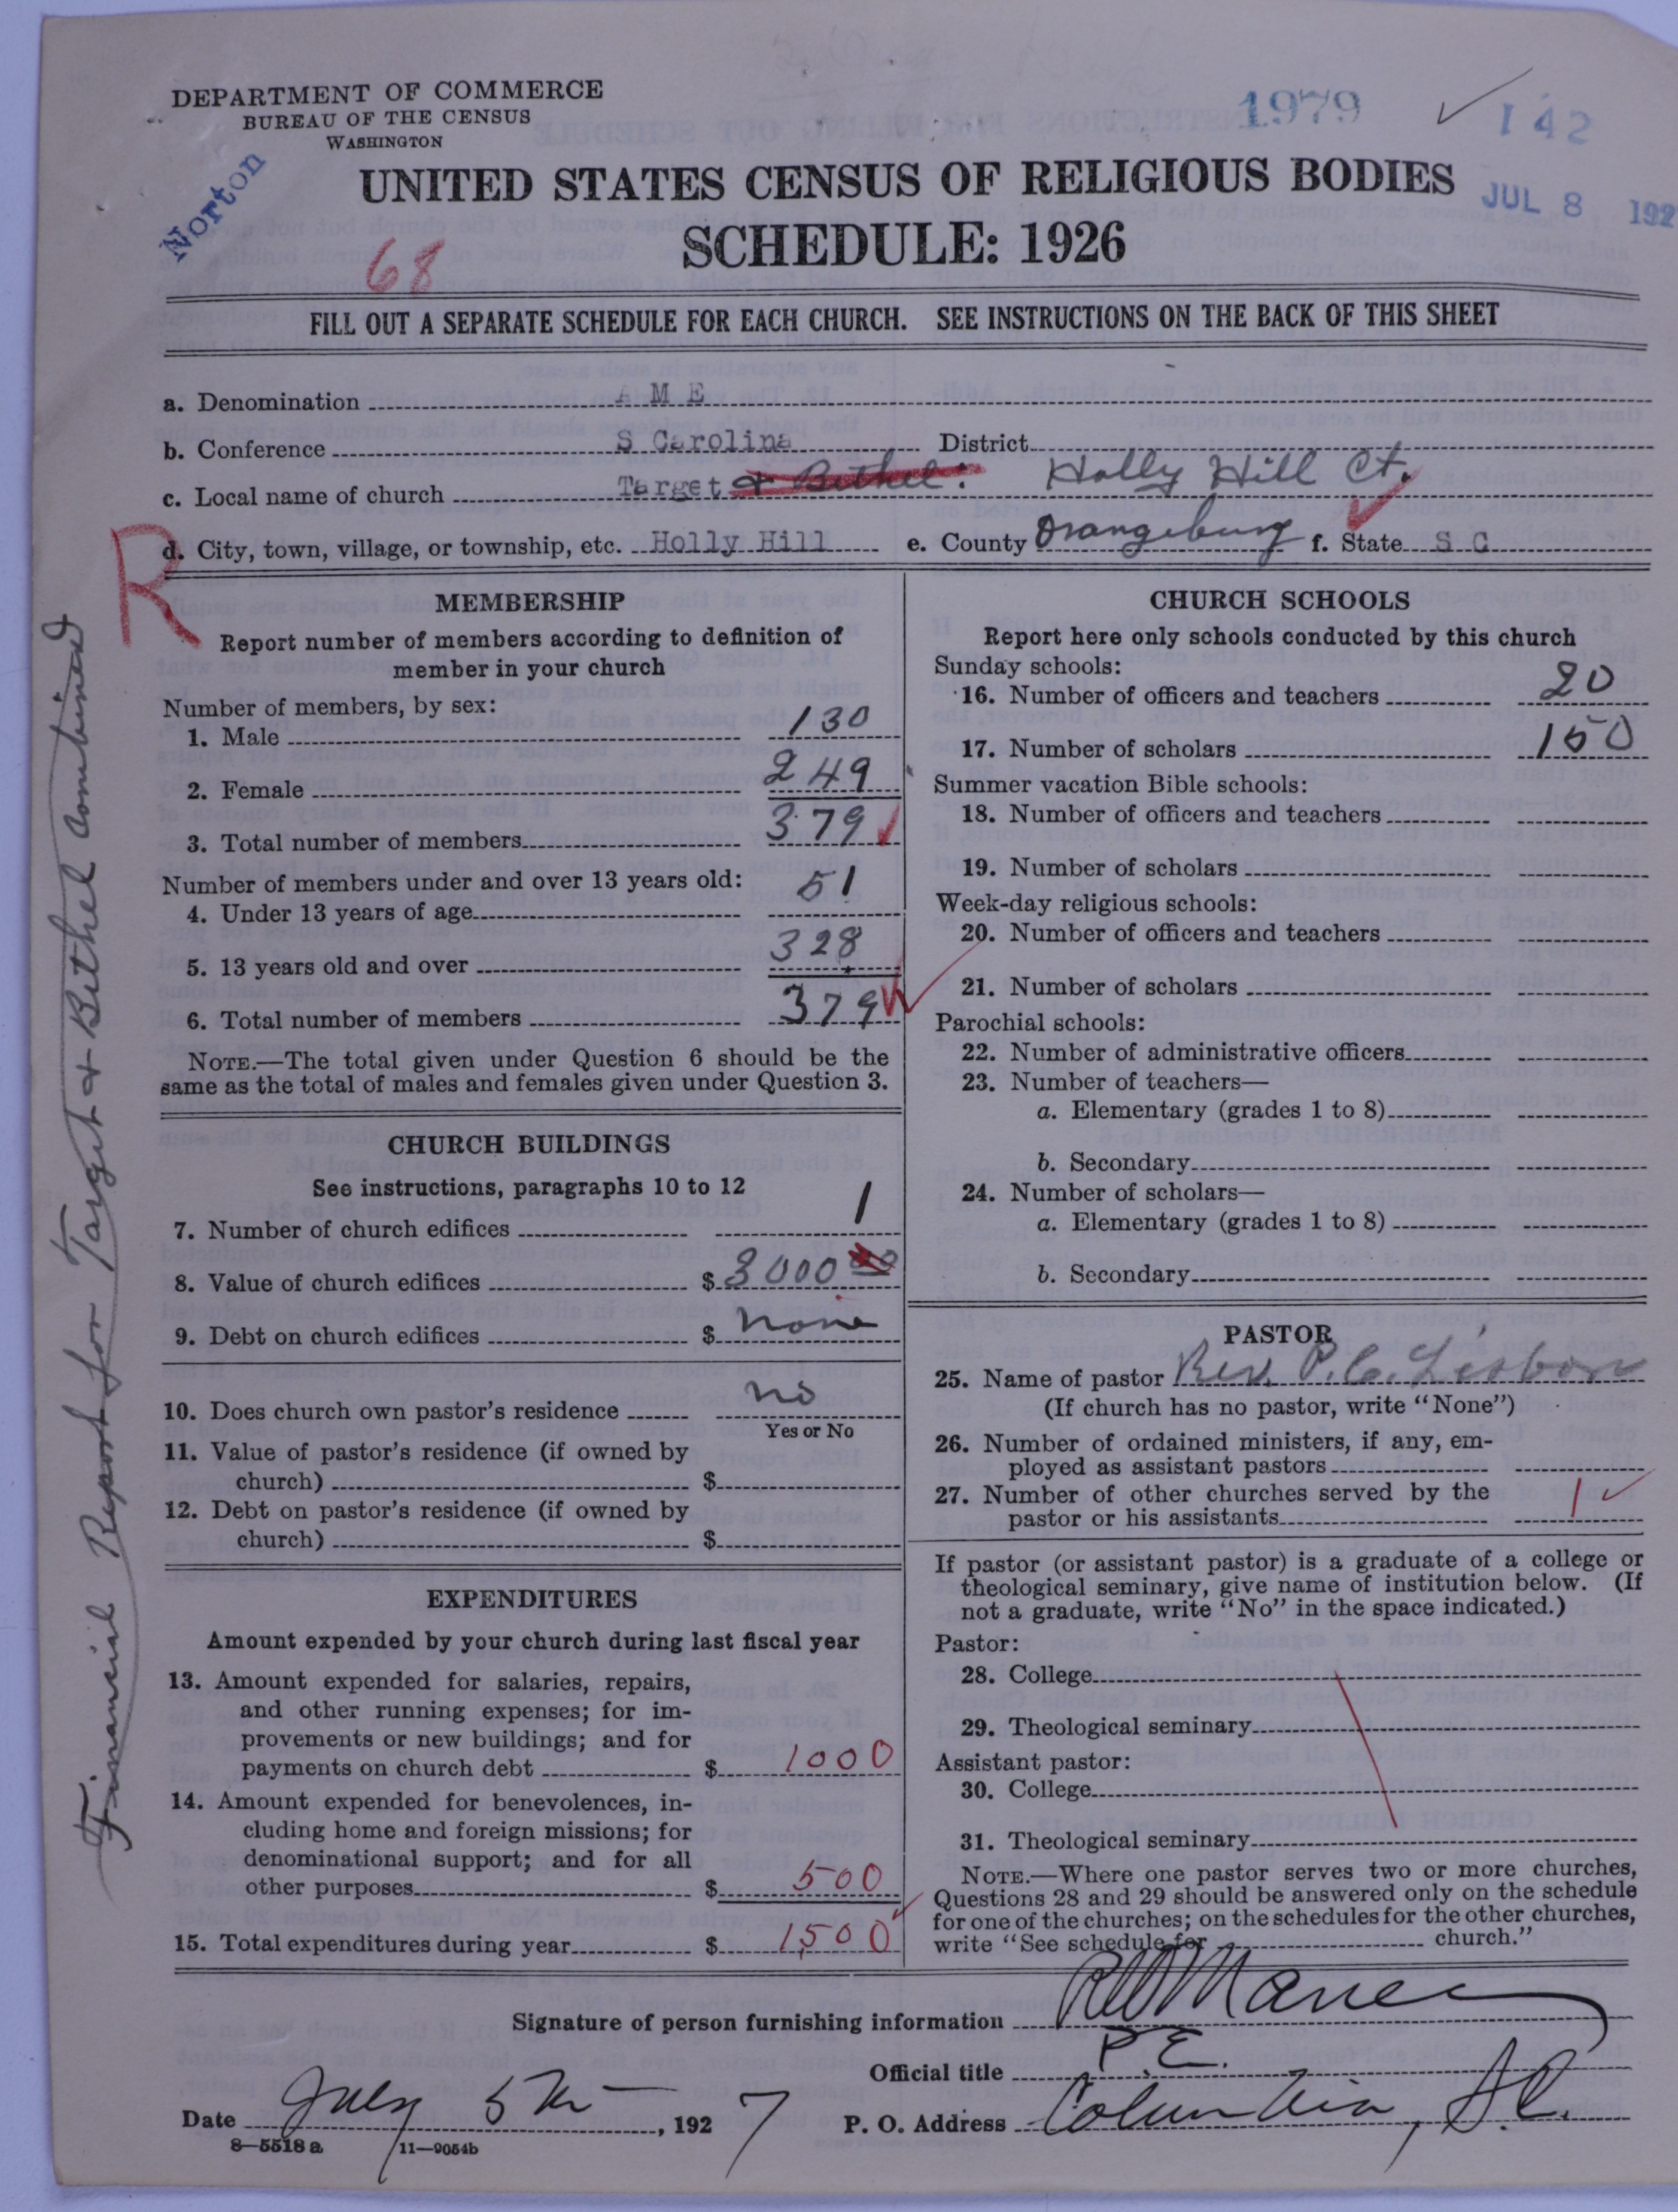 DEPARTMENT OF COMMERCE
BUREAU OF THE CENSUS
WASHINGTON
1979
142
JUL 8 192
Norton
UNITED STATES CENSUS OF RELIGIOUS BODIES
SCHEDULE: 1926
68
FILL OUT A SEPARATE SCHEDULE FOR EACH CHURCH. SEE INSTRUCTIONS ON THE BACK OF THIS SHEET
a. Denomination A M E
b. Conference S Carolina District
c. Local name of church Target & Bethel: Holly Hill Ct.
d. City, town, village, or township, etc. Holly Hill e. County Orangeburg f. State S C
R
Financial Report for Target & Bethel Combined
MEMBERSHIP
Report number of members according to definition of
member in your church
Number of members, by sex:
1. Male 130
2. Female 249
3. Total number of members 379
Number of members under and over 13 years old:
4. Under 13 years of age 51
5. 13 years old and over 328
6. Total number of members 379
NOTE.—The total given under Question 6 should be the
same as the total of males and females given under Question 3.
CHURCH BUILDINGS
See instructions, paragraphs 10 to 12
7. Number of church edifices 1
8. Value of church edifices $ 3000 00
9. Debt on church edifices $ none
10. Does church own pastor's residence no
Yes or No
11. Value of pastor's residence (if owned by
church) $
12. Debt on pastor's residence (if owned by
church) $
EXPENDITURES
Amount expended by your church during last fiscal year
13. Amount expended for salaries, repairs,
and other running expenses; for im-
provements or new buildings; and for
payments on church debt $ 1000
14. Amount expended for benevolences, in-
cluding home and foreign missions; for
denominational support; and for all
other purposes $ 500
15. Total expenditures during year $ 1,500
CHURCH SCHOOLS
Report here only schools conducted by this church
Sunday schools:
16. Number of officers and teachers 20
17. Number of scholars 150
Summer vacation Bible schools:
18. Number of officers and teachers
19. Number of scholars
Week-day religious schools:
20. Number of officers and teachers
21. Number of scholars
Parochial schools:
22. Number of administrative officers
23. Number of teachers—
a. Elementary (grades 1 to 8)
b. Secondary
24. Number of scholars—
a. Elementary (grades 1 to 8)
b. Secondary
PASTOR
25. Name of pastor Rev. P. C. Lisbon
(If church has no pastor, write "None")
26. Number of ordained ministers, if any, em-
ployed as assistant pastors
27. Number of other churches served by the
pastor or his assistants 1
If pastor (or assistant pastor) is a graduate of a college or
theological seminary, give name of institution below. (If
not a graduate, write "No" in the space indicated.)
Pastor:
28. College
29. Theological seminary
Assistant pastor:
30. College
31. Theological seminary
NOTE.—Where one pastor serves two or more churches,
Questions 28 and 29 should be answered only on the schedule
for one of the churches; on the schedules for the other churches,
write "See schedule for church."
Signature of person furnishing information
Official title P. E.
Date July 5th, 1927 P. O. Address Columbia, S.C.
8—5518 a 11—9054b